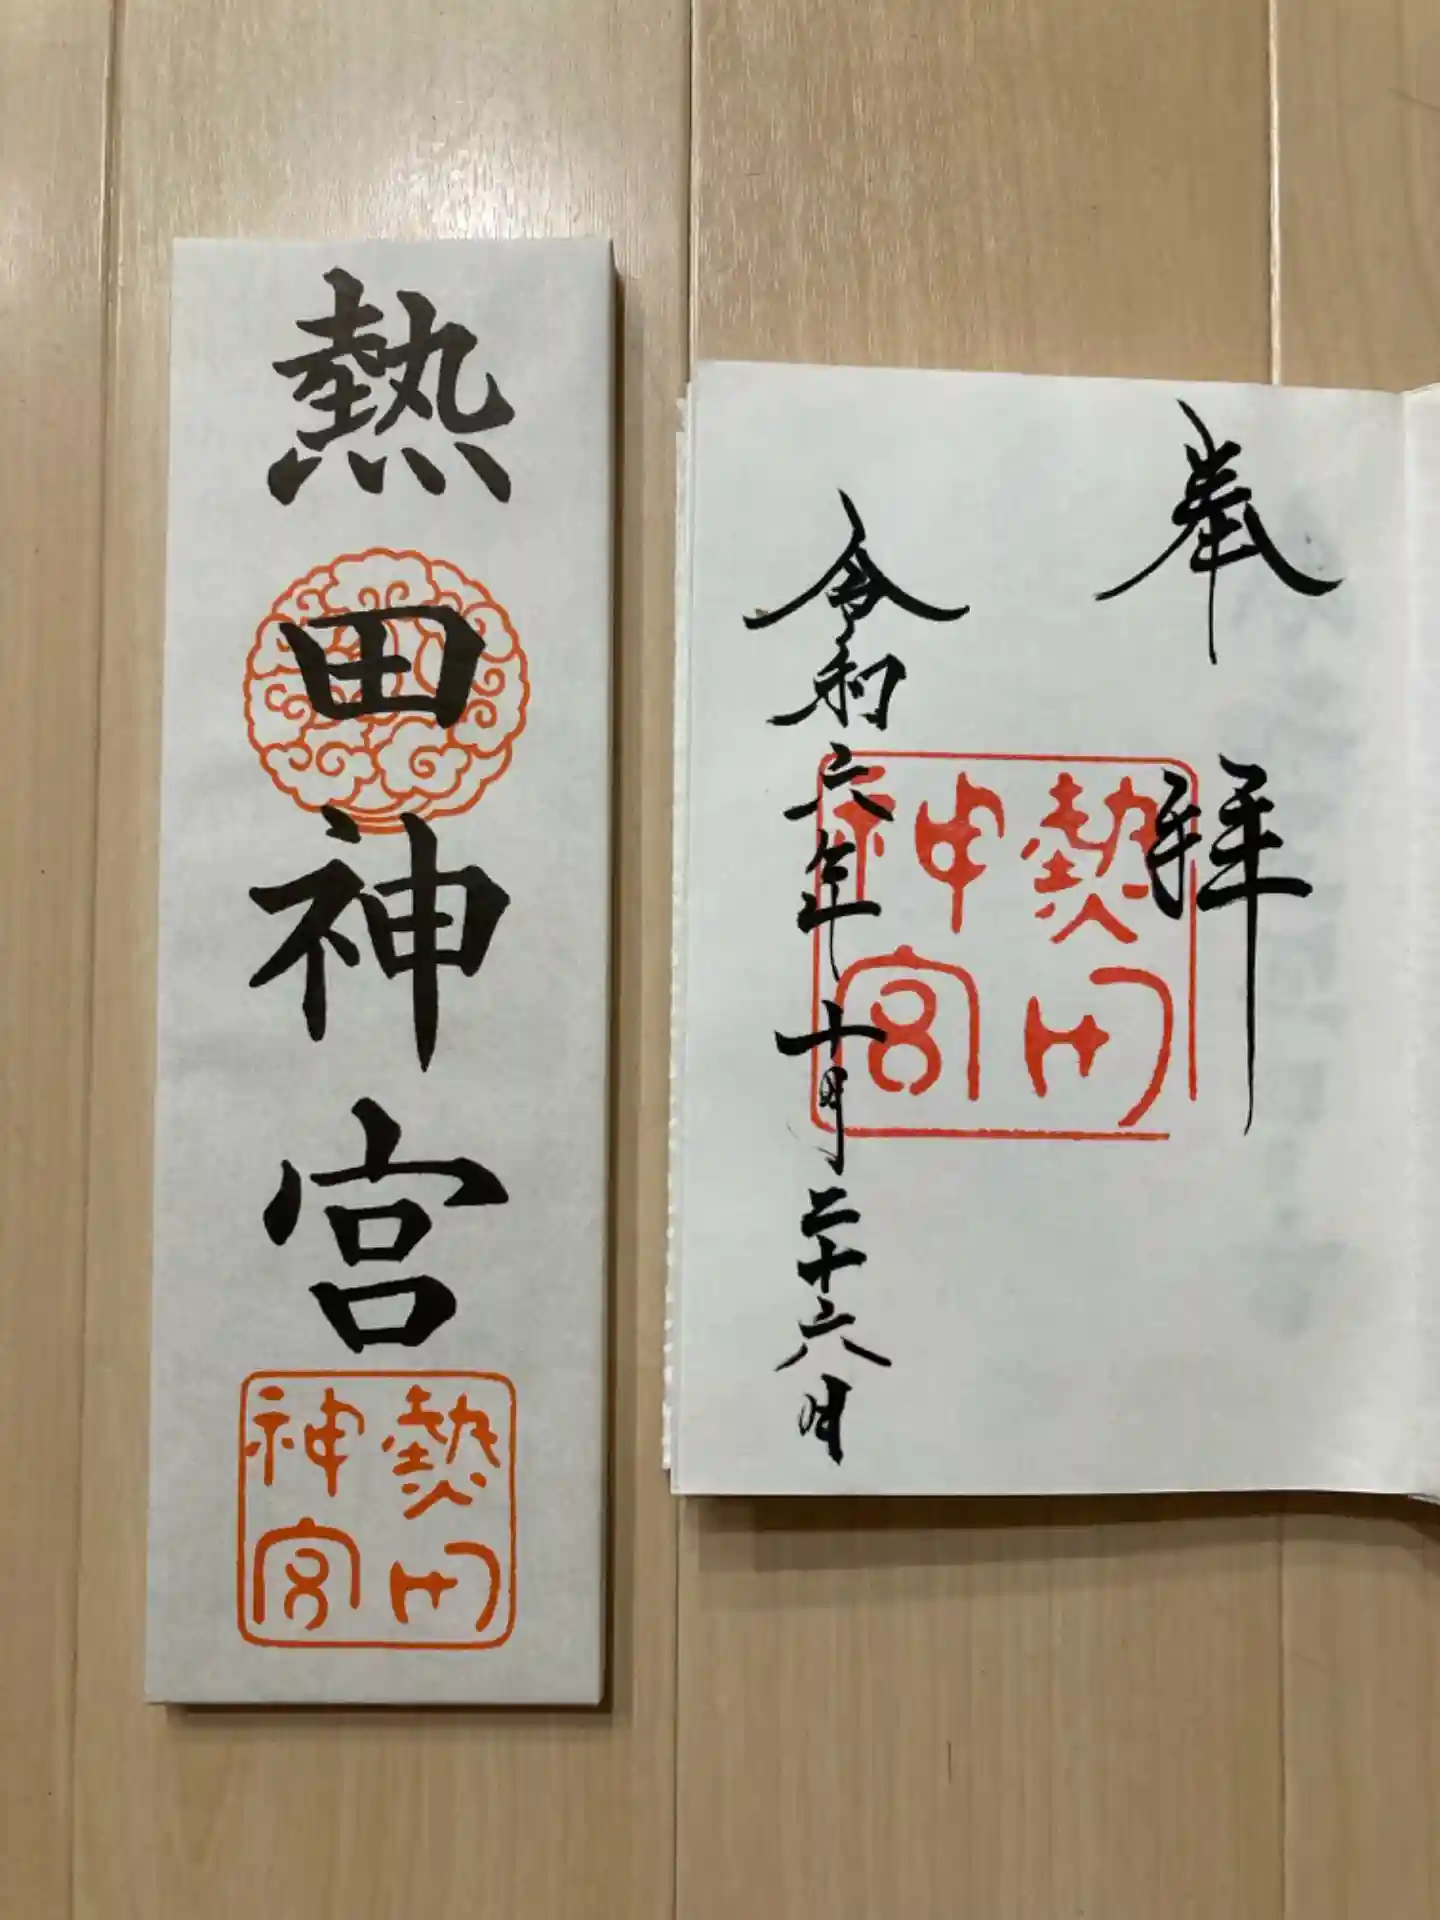 熱田神宮
熱田神宮
奉拝
熱田神宮
令和六年十月二十六日